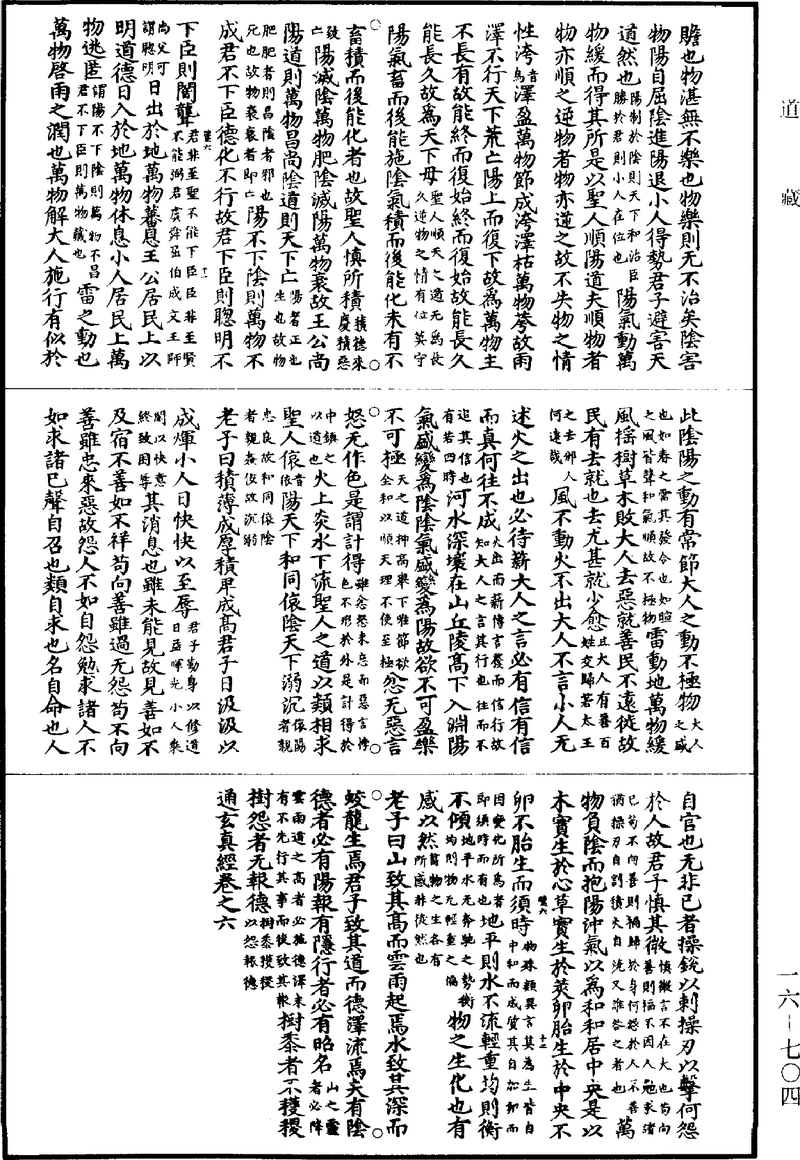 道藏
贍也物湛無不樂也物樂則无不治矣陰害
物陽自屈陰進陽退小人得勢君子避害天
道然也陽制於陰則天下和治臣勝於君則小人在位也陽氣動萬
物緩而得其所是以聖人順陽道夫順物者
物亦順之逆物者物亦逆之故不失物之情
性洿音烏澤盈萬物節成洿澤枯萬物荂故雨
澤不行天下荒亡陽上而復下故爲萬物主
不長有故能終而復始終而復始故能長久
能長久故爲天下母聖人順天之道无爲長久逆物之情有位莫守
陽氣畜而後能施陰氣積而後能化未有不
畜積而後能化者也故聖人慎所積積德來慶積惡致亡
陽滅陰萬物肥陰滅陽萬物衰故王公尚
陽道則萬物昌尚陰道則天下亡陽者正也生也故物
肥肥者則昌陰者邪也死也故物衰衰者即亡陽不下陰則萬物不
成君不下臣德化不行故君下臣則聰明不
下臣則闇聾君非至聖不能下臣臣非至賢不能弼君虞舜巫伯成文王師
尚父可謂聰明日出於地萬物蕃息王公居民上以
明道德日入於地萬物休息小人居民上萬
物逃匿謂陽不下陰則萬物不昌君不下臣則萬物藏也雷之動也
萬物啓雨之潤也萬物解大人施行有似於
此陰陽之動有常節大人之動不極物大人之威
也如春之雷其發令也如暄之風皆聲和氣順故不極物雷動地萬物緩
風揺樹草木敗大人去惡就善民不遠徙故
民有去就也去尤甚就少愈且大人有善百姓交歸若太王
之去邠人何遠哉風不動火不出大人不言小人无
述火之出也必待薪大人之言必有信有信
而真何往不成火出而薪傳言發而信行故知大人之言其行也往而不
追其信也有若四時河水深壤在山丘陵髙下入淵陽
氣盛變爲陰陰氣盛變爲陽故欲不可盈樂
不可極天之道抻高舉下唯節欲全和以順天理不使至極忿无惡言
怒无作色是謂計得雖忿怨未忘而惡言悖色不形於外是計得於
中鎮之以道也火上炎水下流聖人之道以類相求
聖人偯音依陽天下和同偯陰天下溺沉偯陽者親
忠良故和同偯陰者親姦佞故沉溺
老子曰積薄成厚積卑成髙君子日汲汲以
成煇小人日怏怏以至辱君子勤身以修道日益暉光小人乘
閑以快意終致困辱其消息也雖未能見故見善如不
及宿不善如不祥苟向善雖過无怨苟不向
善雖忠來惡故怨人不如自怨勉求諸人不
如求諸已聲自召也類自求也名自命也人
自官也无非已者操銳以刺操刃以擊何怨
於人故君子慎其微慎微言不在大也苟向善則福不因人勉求諸
已苟不向善則禍歸於身何怨於人不善猶操刃自割積火自燒又誰咎之者也萬
物負陰而抱陽沖氣以爲和和居中央是以
木實生於心草實生於莢卵胎生於中央不
卵不胎生而須時物殊類異言其為生皆自中和而成質其自胎卵而
因變化所爲者即須時而有也地平則水不流輕重均則衡
不傾地平水无奔馳之勢衡均則物无輕重之偏物之生化也有
感以然萬物之生各有所感非徒然也
老子曰山致其髙而雲雨起焉水致其深而
蛟龍生焉君子致其道而德澤流焉夫有陰
德者必有陽報有隱行者必有昭名山之靈者必降
雲雨道之高者必施德澤未有不先行其事而後致其報樹黍者不穫稷
樹怨者无報德樹黍穫稷以怨報德
通玄真經卷之六
一六—七〇四